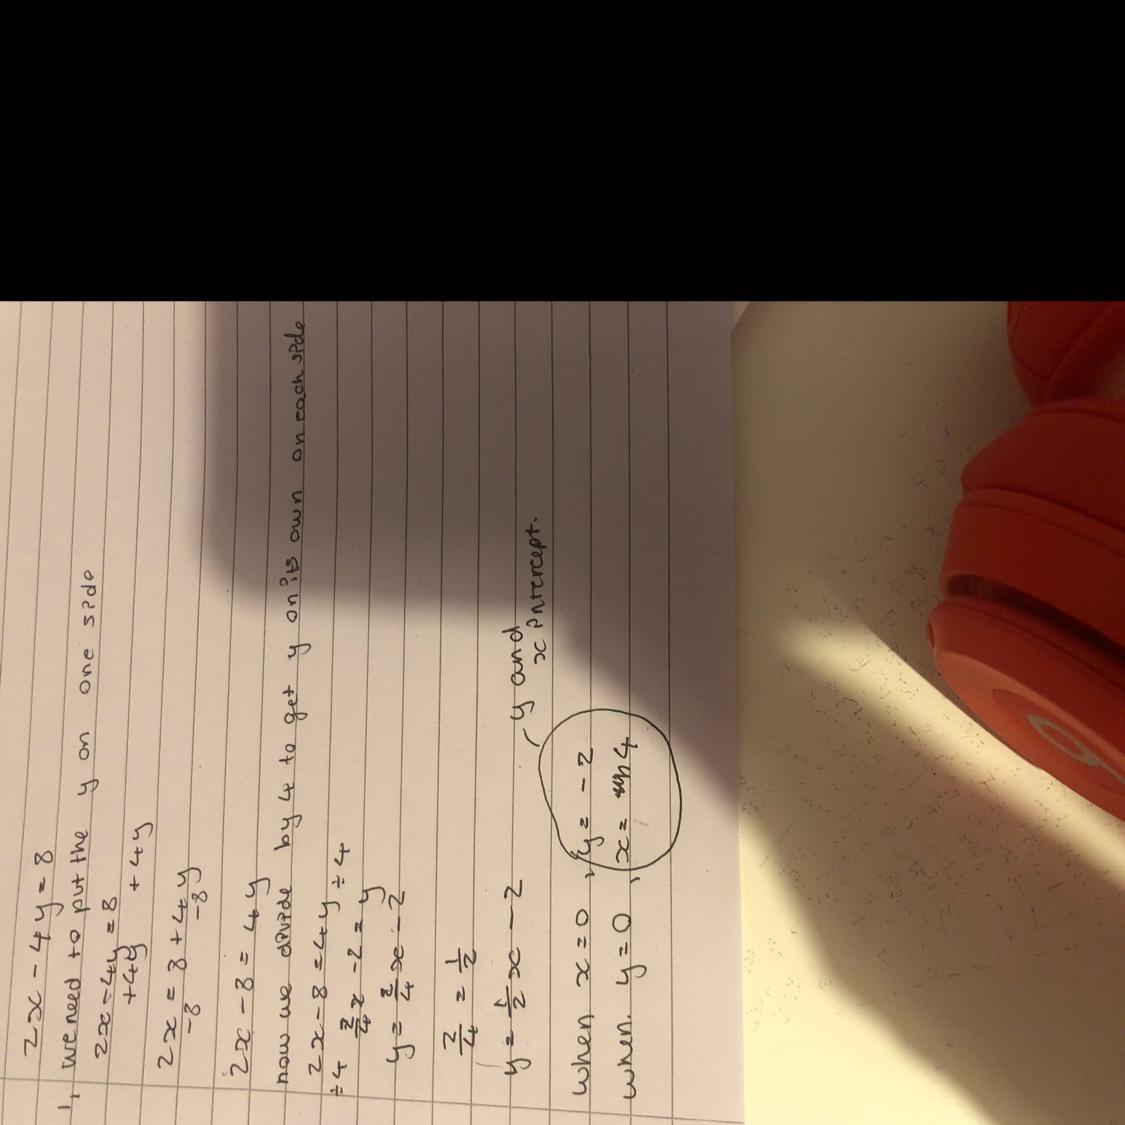 2x - 4y = 8
1, we need to put the y on one side
2x - 4y = 8
+4y + 4y
2x = 8 + 4y
-8 -8
2x - 8 = 4y
now we divide by 4 to get y on its own on each side
2x - 8 = 4y ÷ 4
÷ 4
2/4 x - 2 = y
y = 2/4 x - 2
2/4 = 1/2
y = 1/2 x - 2
y and
x intercept.
when x = 0, y = -2
when y = 0, x = 4